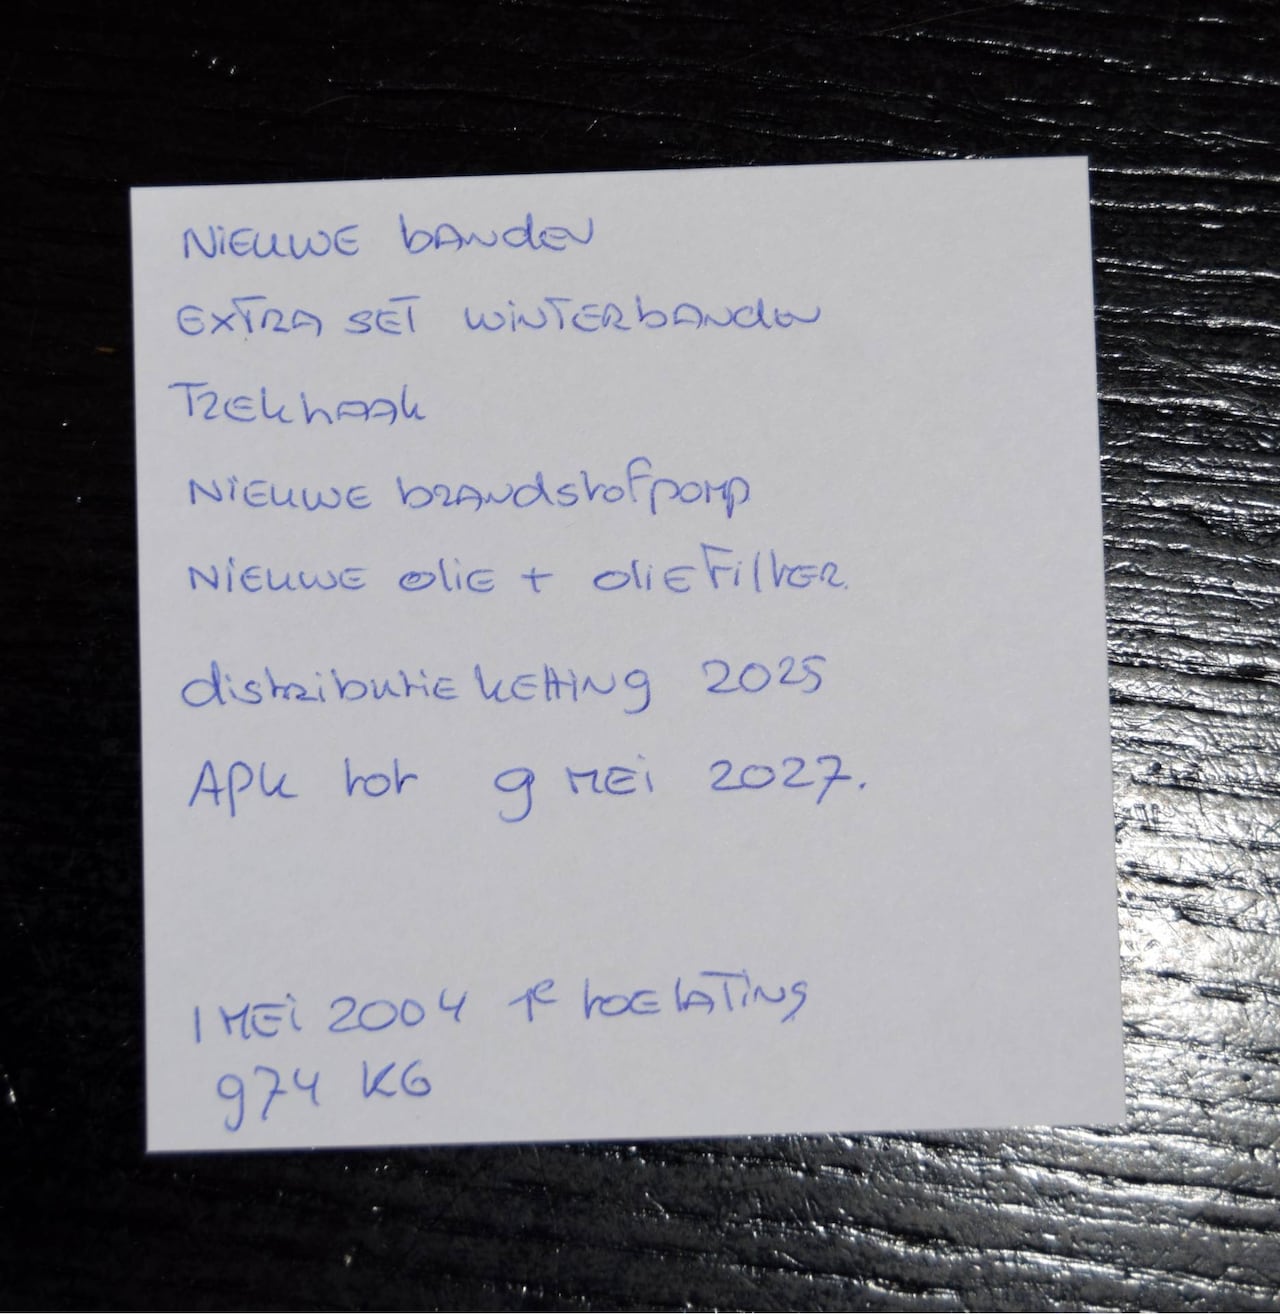 Nieuwe banden
Extra set winterbanden
Trekhaak
Nieuwe brandstofpomp
Nieuwe olie + oliefilter.
distributieketting 2025
APK tot 9 mei 2027.
1 mei 2004 1e toelating
974 KG